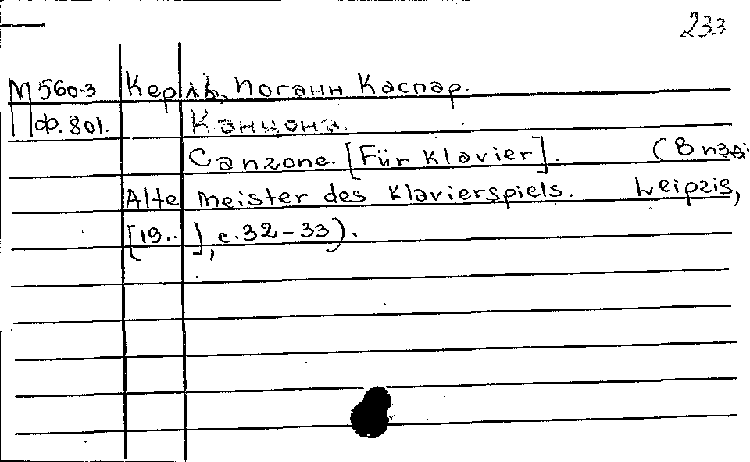 233
М 560-3 Керль, Иоганн Каспар.
Пф. 801. Канцона.
Canzone. [Für Klavier]. (В изд:
Alte Meister des Klavierspiels. Leipzig,
[19..], с. 32-33).